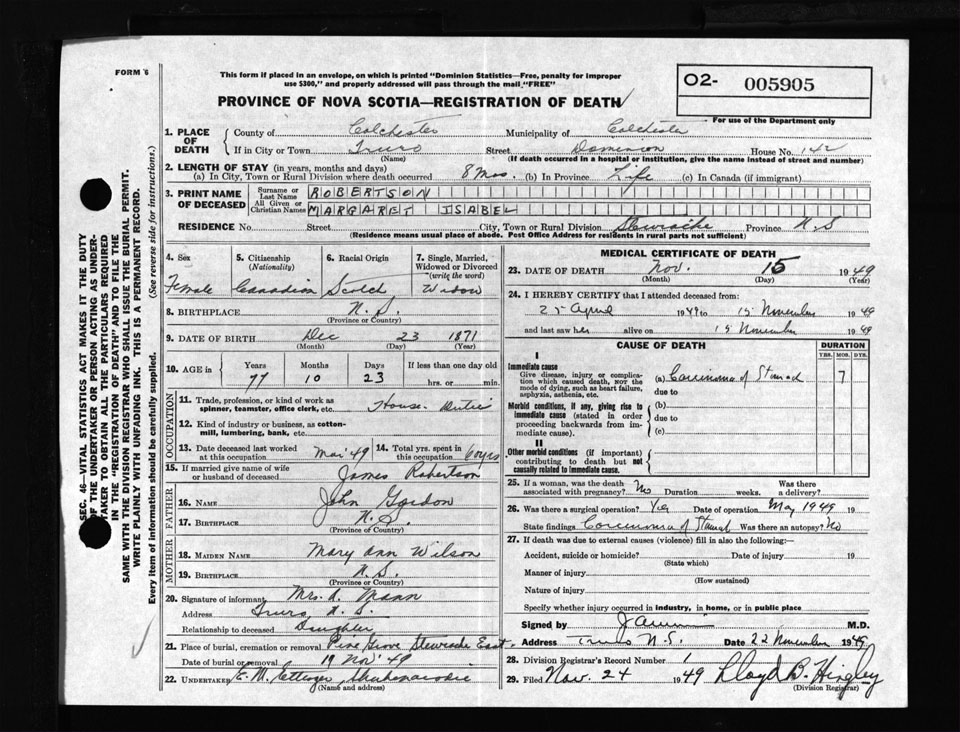 FORM 6
This form if placed in an envelope, on which is printed "Dominion Statistics—Free, penalty for improper
use $300," and properly addressed will pass through the mail "FREE"
O2- 005905
PROVINCE OF NOVA SCOTIA—REGISTRATION OF DEATH
For use of the Department only
1. PLACE OF DEATH
County of Colchester Municipality of Colchester
If in City or Town Truro Street Dominion House No. 142
(Name) (If death occurred in a hospital or institution, give the name instead of street and number)
2. LENGTH OF STAY (in years, months and days)
(a) In City, Town or Rural Division where death occurred 8 Mos. (b) In Province Life (c) In Canada (if immigrant)
3. PRINT NAME OF DECEASED
Surname or Last Name ROBERTSON
All Given or Christian Names MARGARET ISABEL
RESIDENCE No. Street City, Town or Rural Division Stewiacke Province N.S
(Residence means usual place of abode. Post Office Address for residents in rural parts not sufficient)
4. Sex 5. Citizenship (Nationality) 6. Racial Origin 7. Single, Married, Widowed or Divorced (write the word)
Female Canadian Scotch Widow
8. BIRTHPLACE N.S.
(Province or Country)
9. DATE OF BIRTH Dec 23 1871
(Month) (Day) (Year)
10. AGE in Years Months Days If less than one day old
77 10 23 hrs. or min.
OCCUPATION
11. Trade, profession, or kind of work as
spinner, teamster, office clerk, etc. House Duties
12. Kind of industry or business, as cotton-
mill, lumbering, bank, etc.
13. Date deceased last worked at this occupation Mar '49 14. Total yrs. spent in this occupation 60 yrs
15. If married give name of wife
or husband of deceased James Robertson
FATHER
16. NAME John Gordon
17. BIRTHPLACE N.S.
(Province of Country)
MOTHER
18. MAIDEN NAME Mary Ann Wilson
19. BIRTHPLACE N.S.
(Province or Country)
20. Signature of informant Mrs. A. Mann
Address Truro N.S.
Relationship to deceased Daughter
21. Place of burial, cremation or removal Pine Grove Stewiacke East
Date of burial or removal 19 Nov '49
22. UNDERTAKER E. M. Ettinger Shubenacadie
(Name and address)
MEDICAL CERTIFICATE OF DEATH
23. DATE OF DEATH Nov. 15 1949
(Month) (Day) (Year)
24. I HEREBY CERTIFY that I attended deceased from:
25 April 1949 to 15 November 1949
and last saw her alive on 15 November 1949
CAUSE OF DEATH DURATION
YRS. MOS. DYS.
I
Immediate cause
Give disease, injury or complica-
tion which caused death, not the
mode of dying, such as heart failure,
asphyxia, asthenia, etc.
(a) Carcinoma of Stomach 7
due to
Morbid conditions, if any, giving rise to
immediate cause (stated in order
proceeding backwards from im-
mediate cause).
(b)
due to
(c)
II
Other morbid conditions (if important)
contributing to death but not
causally related to immediate cause.
25. If a woman, was the death
associated with pregnancy? No Duration weeks. Was there a delivery?
26. Was there a surgical operation? Yes Date of operation May 1949 19
State findings Carcinoma of Stomach Was there an autopsy? No
27. If death was due to external causes (violence) fill in also the following:—
Accident, suicide or homicide? Date of injury 19
(State which)
Manner of injury
(How sustained)
Nature of injury
Specify whether injury occurred in industry, in home, or in public place
Signed by M.D.
Address Truro N.S. Date 22 November 1949
28. Division Registrar's Record Number
29. Filed Nov. 24 1949 Lloyd B. Hingley
(Division Registrar)
SEC. 46—VITAL STATISTICS ACT MAKES IT THE DUTY
OF THE UNDERTAKER OR PERSON ACTING AS UNDER-
TAKER TO OBTAIN ALL THE PARTICULARS REQUIRED
IN THE "REGISTRATION OF DEATH" AND TO FILE THE
SAME WITH THE DIVISION REGISTRAR WHO SHALL ISSUE THE BURIAL PERMIT.
WRITE PLAINLY WITH UNFADING INK. THIS IS A PERMANENT RECORD.
Every item of information should be carefully supplied. (See reverse side for instructions.)